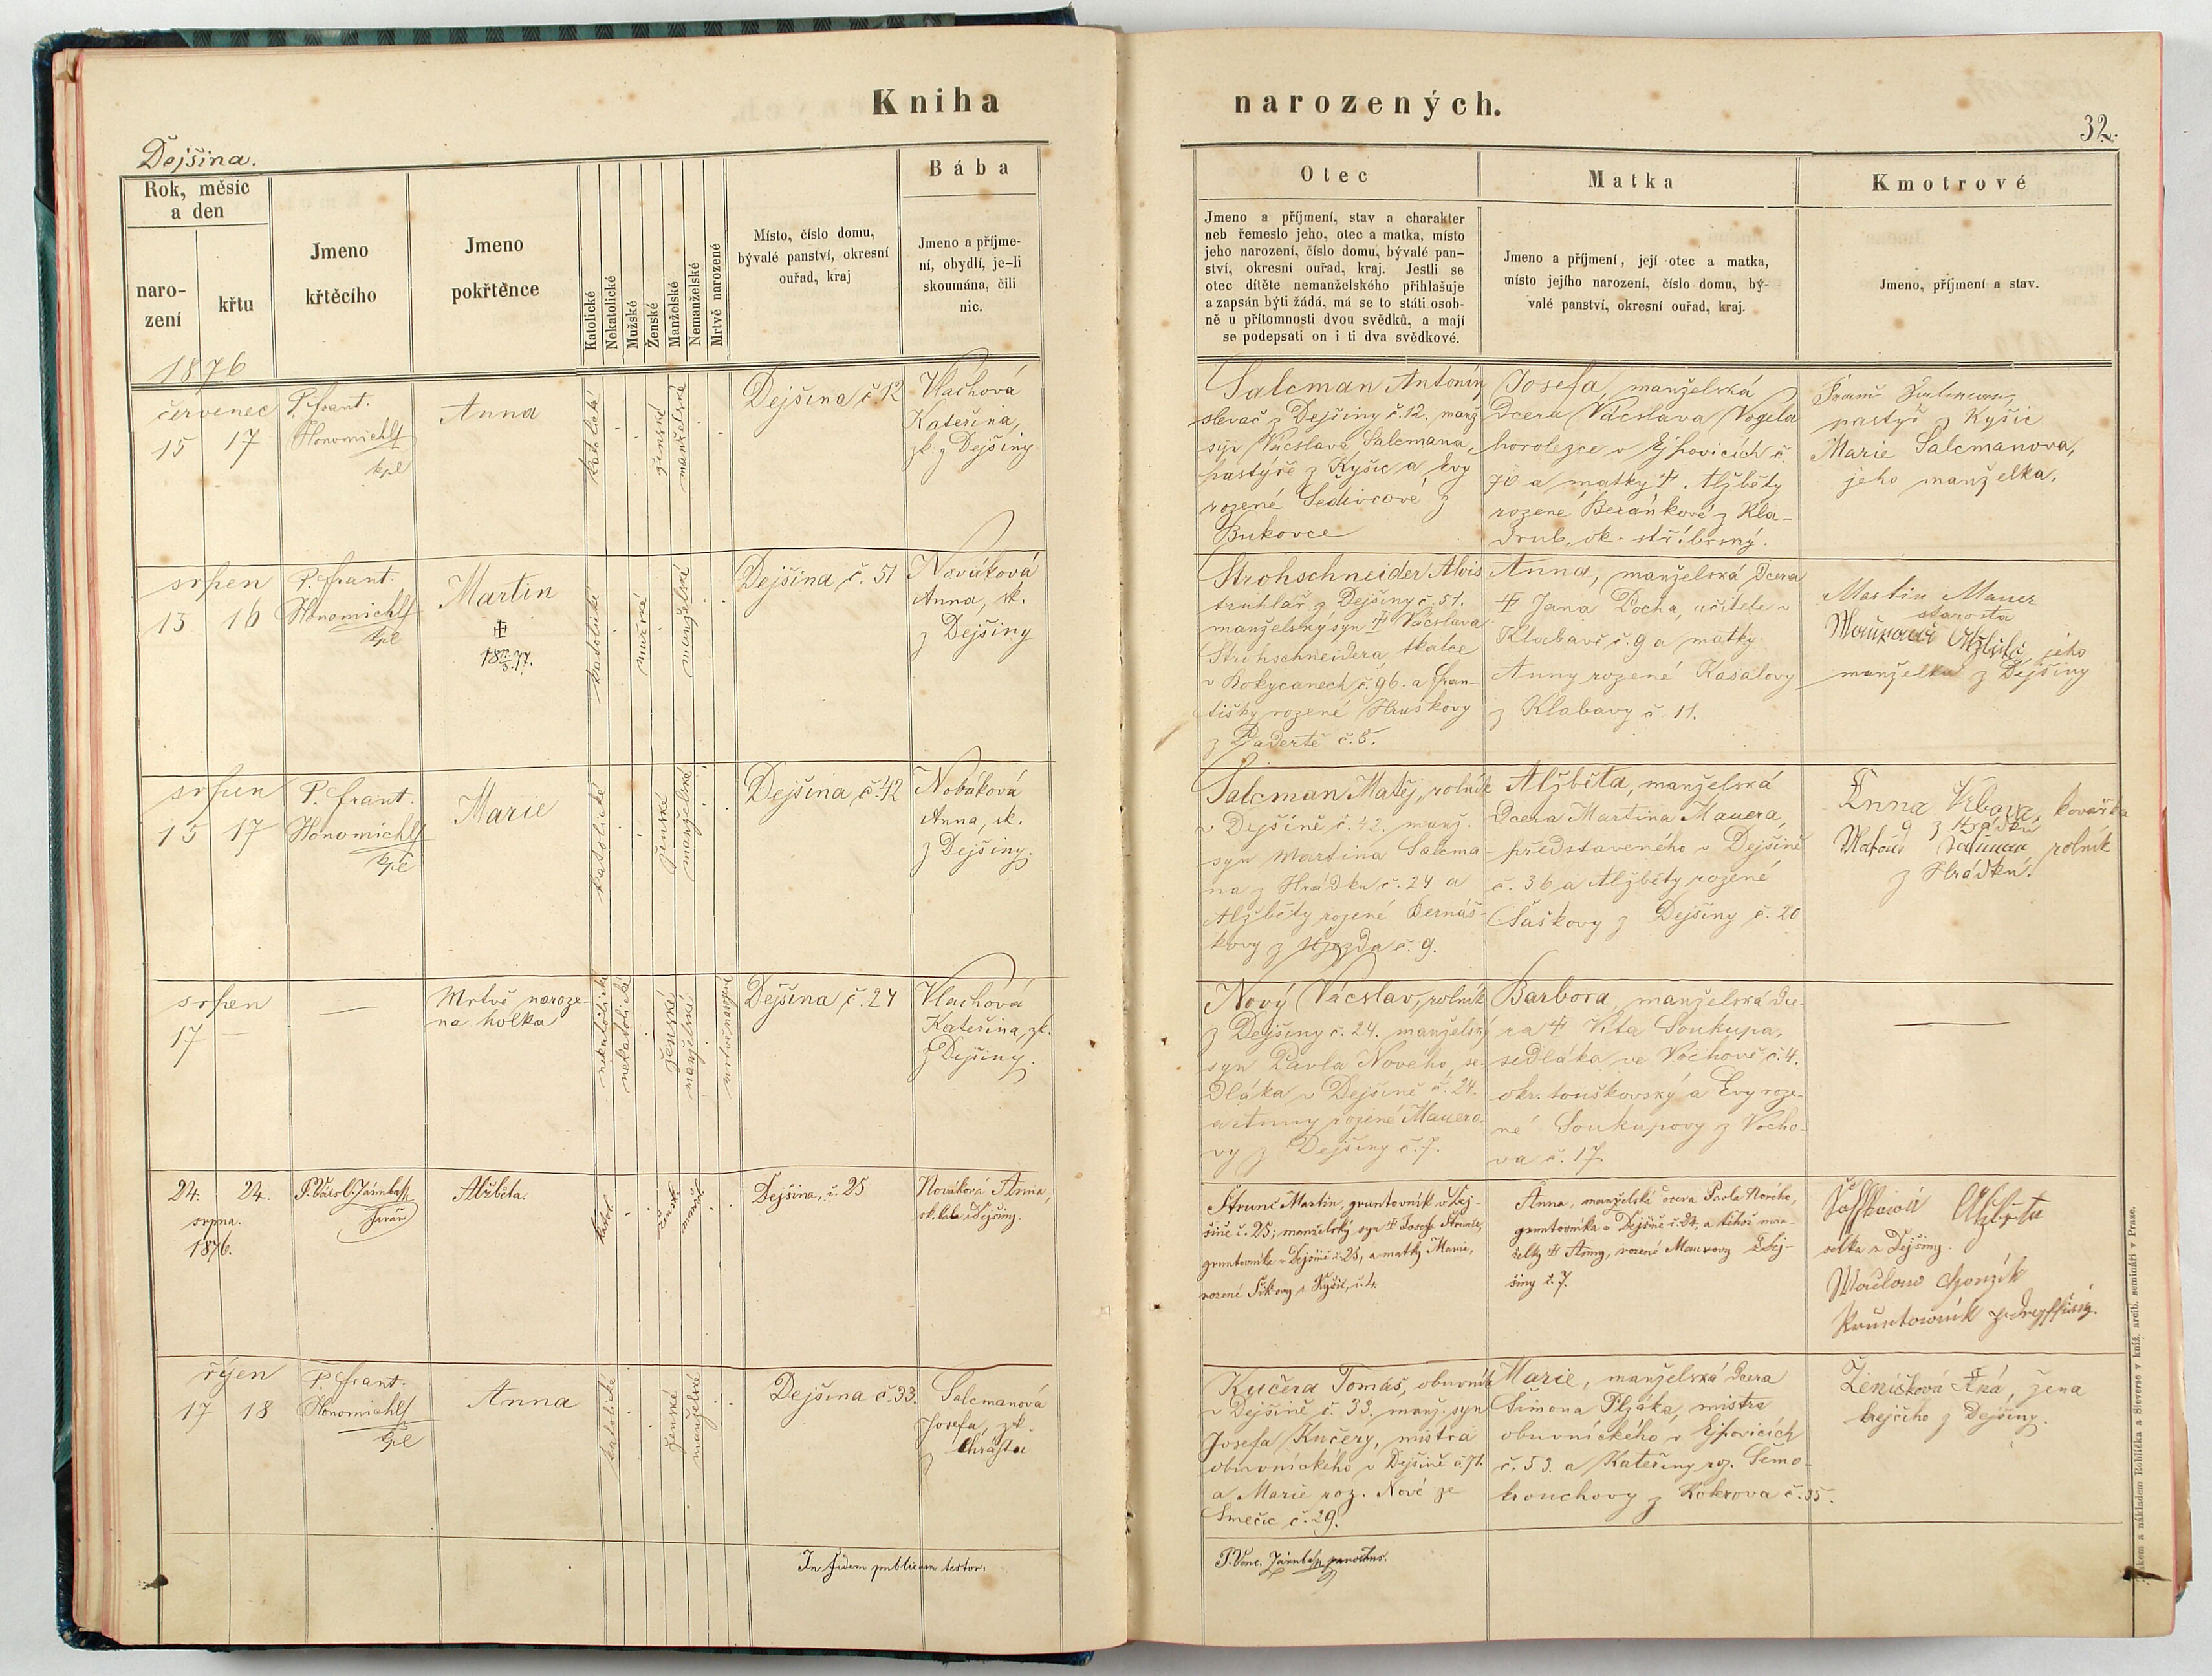 Kniha
Dejšina.
Rok, měsíc
a den
naro-
zení
křtu
Jmeno
křtěcího
Jmeno
pokřtěnce
Katolické
Nekatolické
Mužské
Ženské
Manželské
Nemanželské
Mrtvě narozené
Místo, číslo domu,
bývalé panství, okresní
ouřad, kraj
Bába
Jmeno a příjme-
ní, obydlí, je-li
skoumána, čili
nic.
1876
červenec
15 17
P. Frant.
Honomichl
kpl
Anna
katolické
ženské
manželské
Dejšina č. 12
Vlachová
Kateřina,
zk. z Dejšiny
srpen
13 16
P. Frant.
Honomichl
kpl
Martin
katolické
mužské
manželské
Dejšina, č. 51
Nováková
Anna, sk.
z Dejšiny
srpen
15 17
P. Frant.
Honomichl
kpl
Marie
katolické
ženské
manželské
Dejšina, č. 42
Nováková
Anna, sk.
z Dejšiny.
srpen
17 —
—
Mrtvě naroze-
na holka
nekatolické
ženské
manželské
mrtvě narozené
Dejšina, č. 24
Vlachová
Kateřina, zk.
z Dejšiny.
24. 24.
srpna.
1876.
farář
Alžběta.
katol.
ženské
manžel.
Dejšina, č. 25
Nováková Anna,
z Dejšiny.
říjen
17 18
P. Frant.
Honomichl
kpl
Anna
katolické
ženské
manželské
Dejšina č. 33.
Salcmanová
Josefa, zk.
z Chrástu
In fidem publicam testor.
narozených.
32.
Otec
Jmeno a příjmení, stav a charakter
neb řemeslo jeho, otec a matka, místo
jeho narození, číslo domu, bývalé pan-
ství, okresní ouřad, kraj. Jestli se
otec dítěte nemanželského přihlašuje
a zapsán býti žádá, má se to státi osob-
ně u přítomnosti dvou svědků, a mají
se podepsati on i ti dva svědkové.
Matka
Jmeno a příjmení, její otec a matka,
místo jejího narození, číslo domu, bý-
valé panství, okresní ouřad, kraj.
Kmotrové
Jmeno, příjmení a stav.
Salcman Antonín
slevač z Dejšiny č. 12. manž.
syn Vácslava Salcmana,
pastýře z Kyšic a Evy
rozené Šedivcové z
Bukovce
Josefa, manželská
dcera Vácslava Vogela
horolezce v Ejpovicích č.
70 a matky †. Alžběty
rozené Beránkové z Kla-
drub, ok. stříbrský.
pastýř z Kyšic
Marie Salcmanova,
jeho manželka.
Strohschneider Alois
truhlář z Dejšiny č. 51.
manželský syn † Vácslava
Strohschneidera, tkalce
v Rokycanech č. 96. a Fran-
tišky rozené Hruškovy
z Padertě č. 5.
Anna, manželská dcera
† Jana Pocha, učitele v
Klabavě č. 9 a matky
Anny rozené Kasalovy
z Klabavy č. 11.
Martin Mauer
starosta
jeho
manželka z Dejšiny
Salcman Matěj, rolník
v Dejšině č. 42. manž.
syn Martina Salcma-
na z Hrádku č. 24 a
Alžběty rozené Bernáš-
kovy z Újezda č. 9.
Alžběta, manželská
dcera Martina Mauera,
představeného v Dejšině
č. 36 a Alžběty rozené
Šaškovy z Dejšiny č. 20
Anna kovářka
z Hrádku
rolník
z Hrádku.
Nový Vácslav, rolník
z Dejšiny č. 24. manželský
syn Pavla Nového, se-
dláka v Dejšině č. 24.
a Anny rozené Mauero-
vy z Dejšiny č. 7.
Barbora, manželská dce-
ra † Víta Soukupa,
sedláka ve Vochově č. 4.
okr. touškovský a Evy roze-
né Soukupovy z Vocho-
va č. 17.
—
Štrunc Martin, gruntovník v Dej-
šině č. 25; manželský syn † Josefa Štrunce,
gruntovníka v Dejšině č. 25, a matky Marie,
rozené z Kyšic, č. 4.
Anna, manželská dcera Pavla Nového,
gruntovníka v Dejšině č. 24, a téhož man-
želky † Anny, rozené Maurovy z Dej-
šiny č. 7.
Alžběta
selka z Dejšiny.
Kučera Tomáš, obuvník
v Dejšině č. 33. manž. syn
Josefa Kučery, mistra
obuvnického v Dejšině č. 71.
a Marie roz. Nové ze
Smečic č. 29.
Marie, manželská dcera
Šimona Pljáka, mistra
obuvnického v Ejpovicích
č. 53. a Kateřiny roz. Šemo-
krouchovy z Kokrova č. 35.
Ženíšková Aná, žena
krejčího z Dejšiny.
parochus.